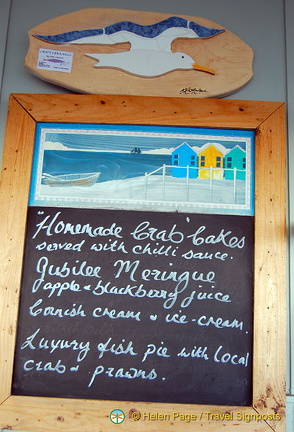 "Homemade Crab" cakes
served with chilli sauce.
Jubilee Meringue
apple & blackberry juice
Cornish cream & ice-cream.
Luxury fish pie with local
crab & prawns.
© Helen Page / Travel Signposts